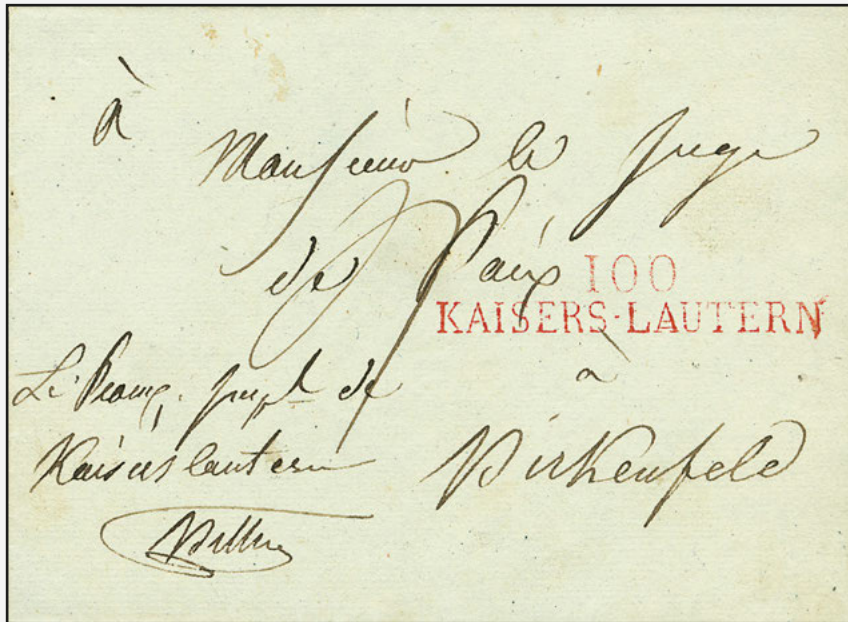 à
Monsieur le Juge
de Paix
100
KAISERS-LAUTERN
à
Birkenfeld
Le de
Kaiserslautern